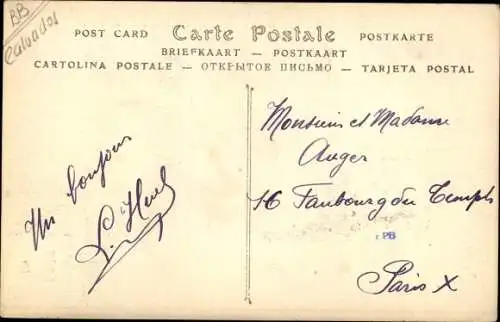 BB
Calvados
POST CARD Carte Postale POSTKARTE
BRIEFKAART — POSTKAART
CARTOLINA POSTALE — ОТКРЫТОЕ ПИСЬМО — TARJETA POSTAL
Un bonjour
Monsieur et Madame
Auger
16 Faubourg du Temple
PB
Paris X